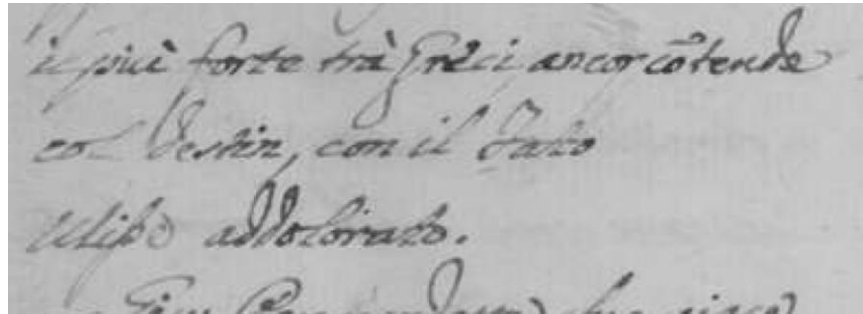 il più forte trà Greci ancor cõtende
col Destin, con il Fato
Ulisse addolorato.